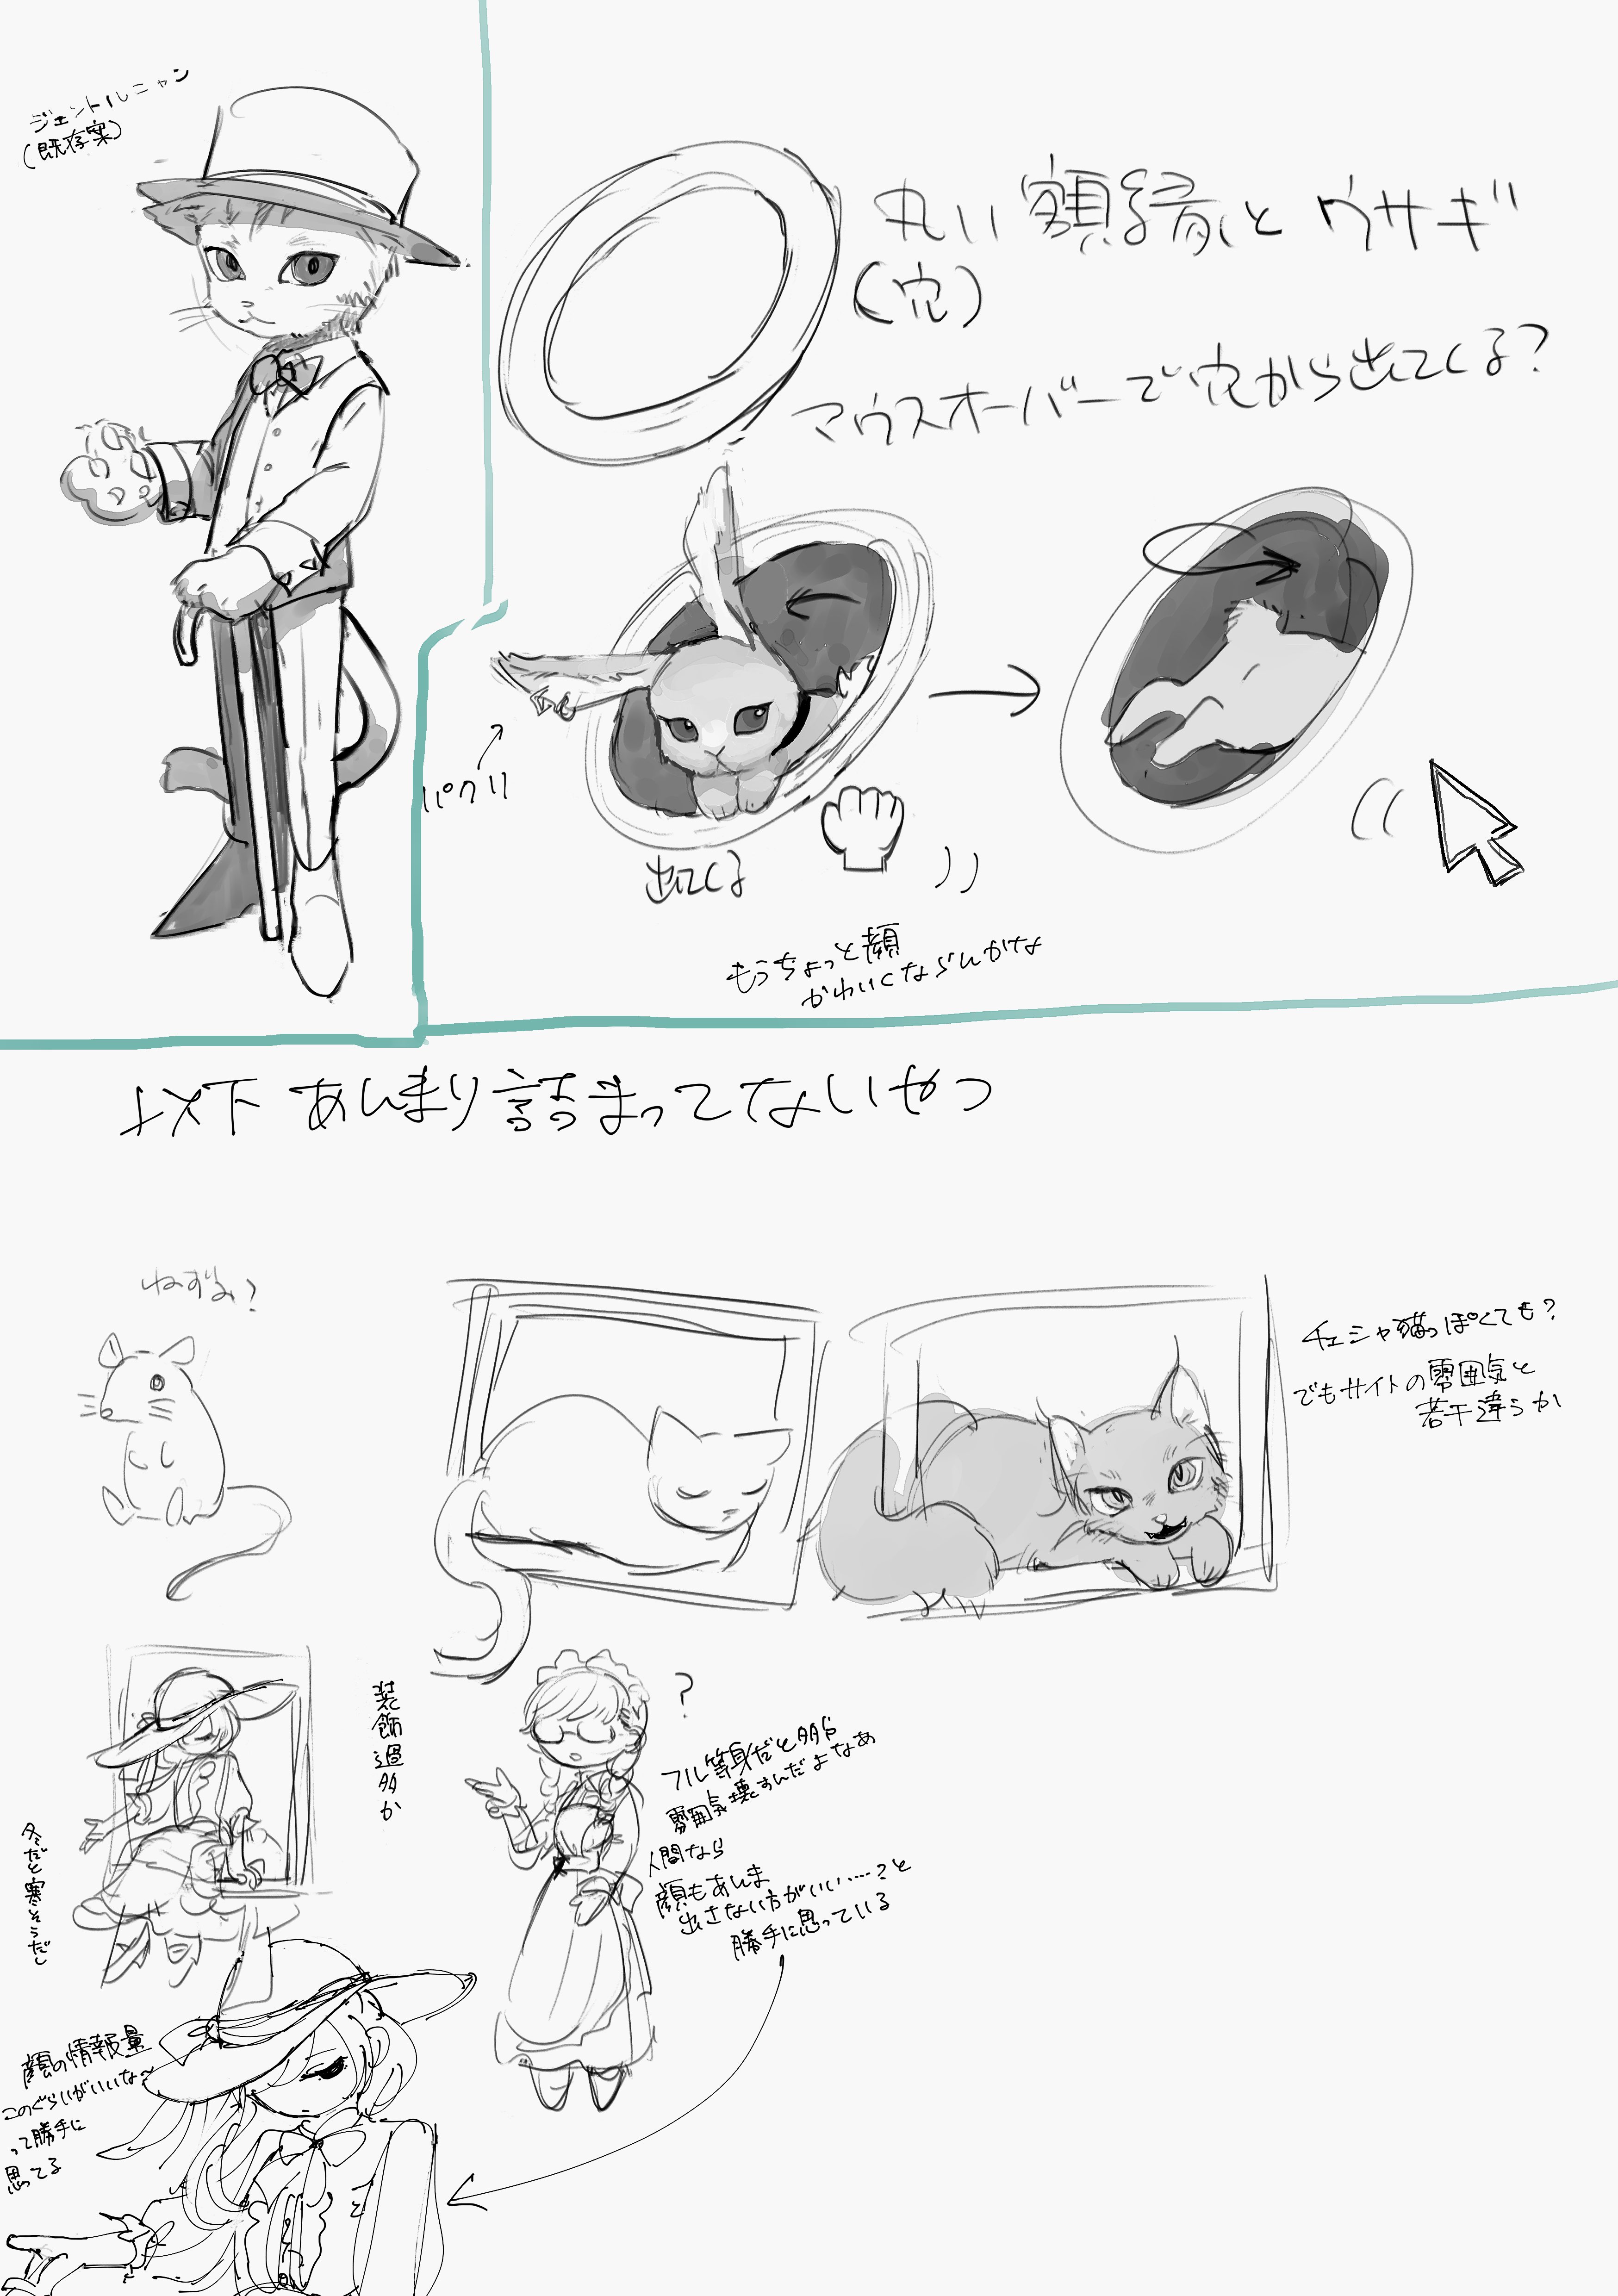 ジェントルニャン
(既存案)
丸い額縁とウサギ
(穴)
マウスオーバーで穴から出てくる?
パクリ
出てくる
もうちょっと顔
かわいくならんかな
以下 あんまり詰まってないやつ
ねずみ?
チェシャ猫っぽくても?
でもサイトの雰囲気と
若干違うか
装飾過多か
冬だと寒そうだし
?
フル等身だと多分
雰囲気壊すんだよなあ
人間なら
顔もあんま
出さない方がいい……?と
勝手に思っている
顔の情報量
このぐらいがいいな〜
って勝手に
思ってる